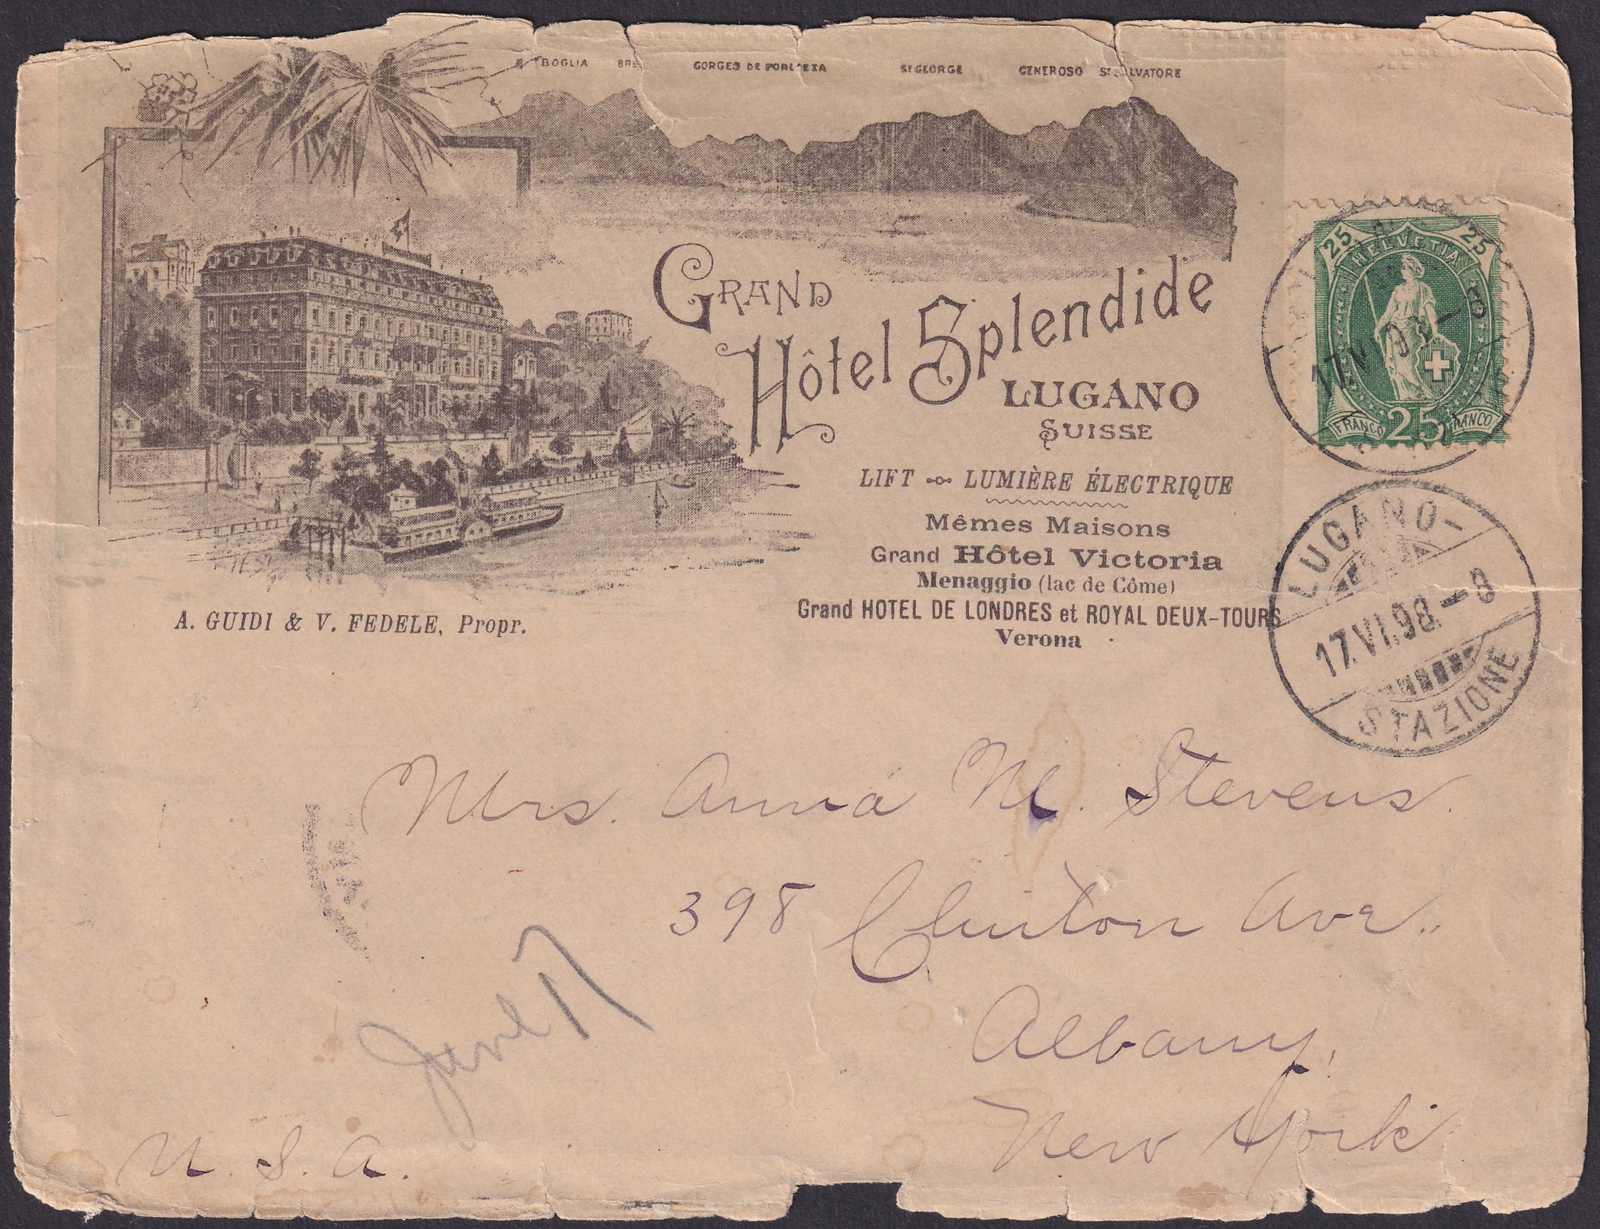 BOGLIA BRE GORGES DE PORLEZZA St GEORGE GENEROSO St SALVATORE
GRAND
Hôtel Splendide
LUGANO
SUISSE
LIFT LUMIÈRE ÉLECTRIQUE
Mêmes Maisons
Grand Hôtel Victoria
Menaggio (lac de Côme)
Grand HOTEL DE LONDRES et ROYAL DEUX-TOURS
Verona
A. GUIDI & V. FEDELE, Propr.
25 HELVETIA 25
FRANCO 25 FRANCO
17.VI.98.-8
LUGANO-
17.VI.98.-8
STAZIONE
Mrs. Anna M. Stevens.
398 Clinton Ave.
Albany,
New York
U. S. A.
June 17